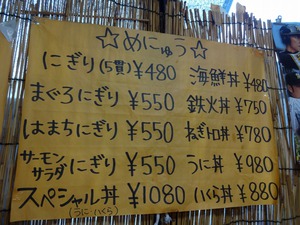 ☆めにゅう☆
にぎり(5貫)¥480 海鮮丼¥480
まぐろにぎり¥550 鉄火丼¥750
はまちにぎり¥550 ねぎトロ丼¥780
サーモンサラダにぎり¥550 うに丼¥980
スペシャル丼¥1080 いくら丼¥880
(うに・いくら)